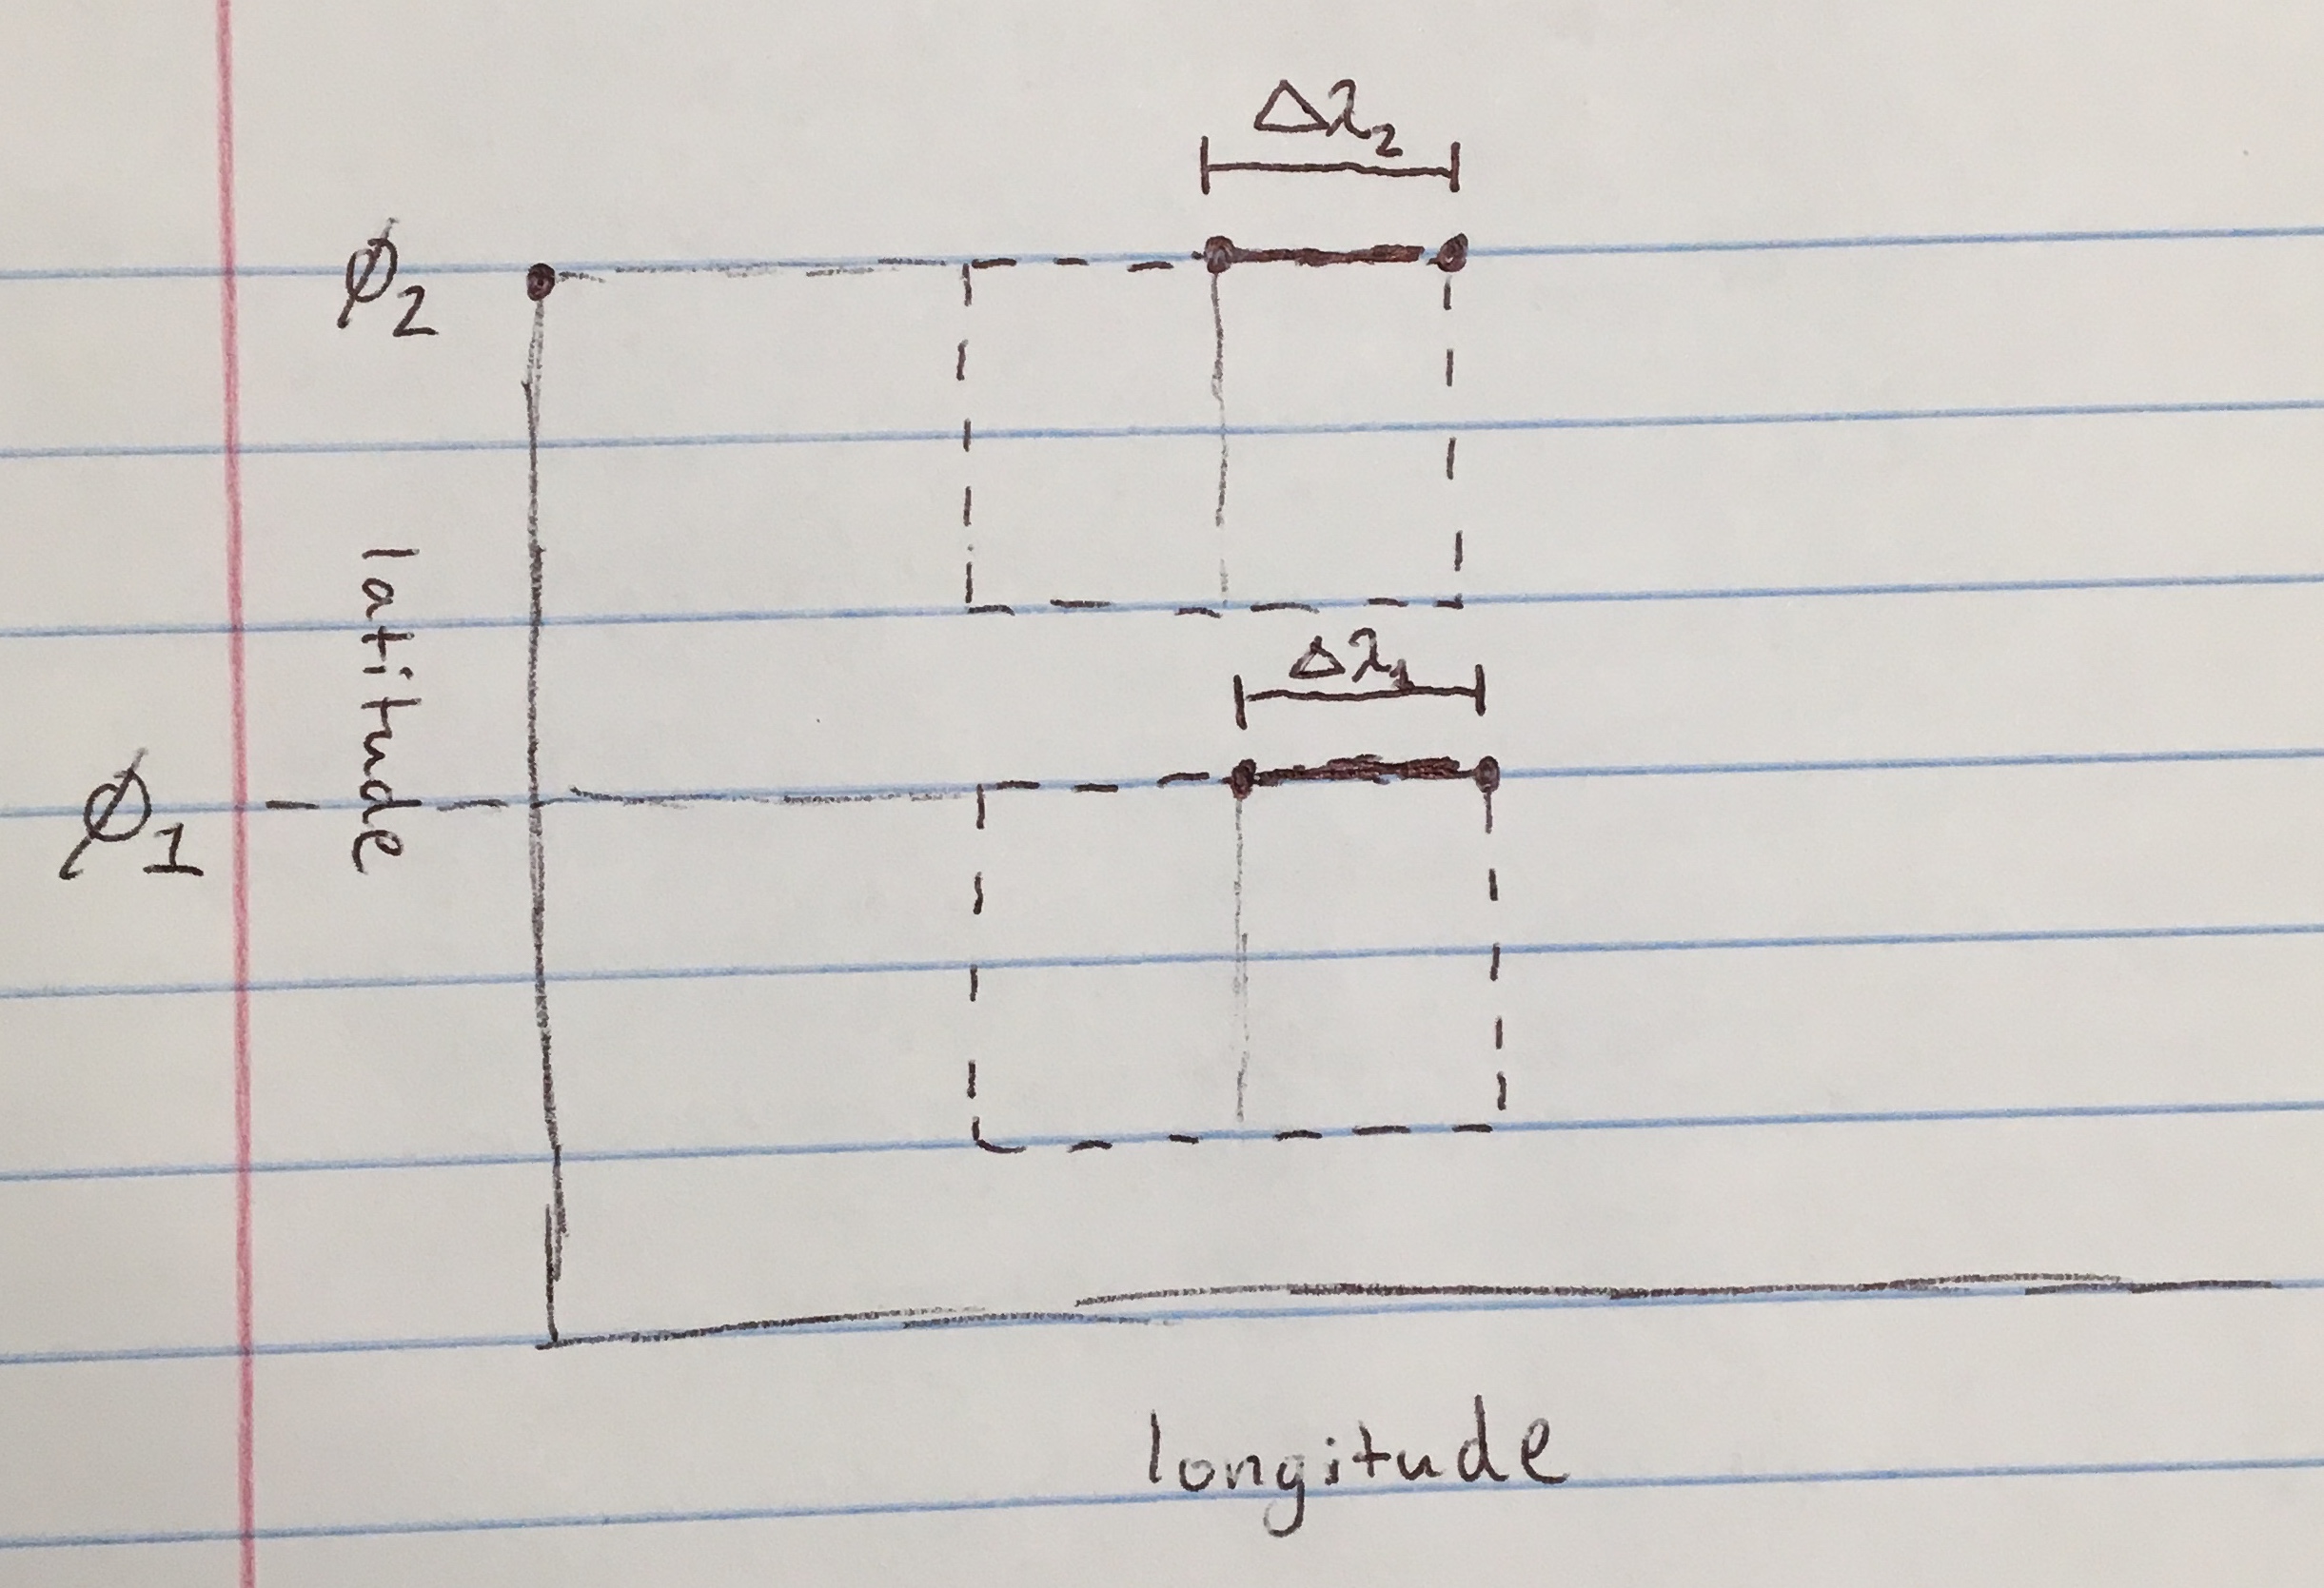 Δλ₂
ϕ₂
latitude
Δλ₁
ϕ₁
longitude